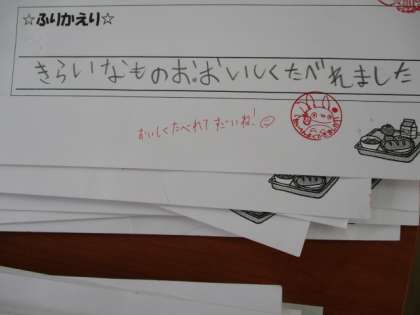 ☆ふりかえり☆
きらいなものお.おいしくたべれました
おいしくたべれて すごいね!